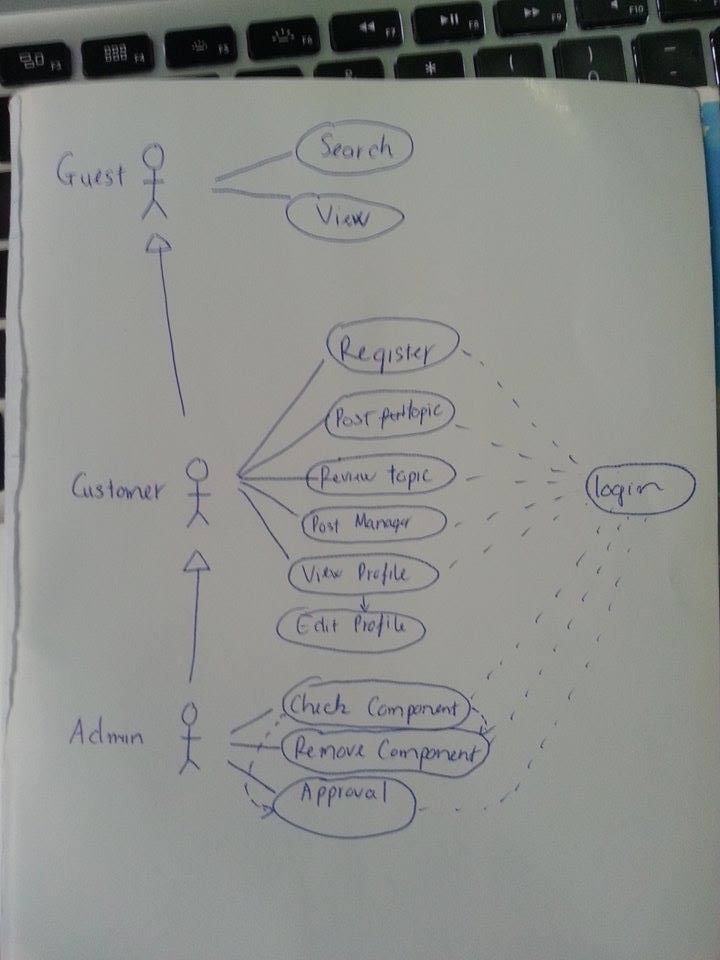 F3
F4
F5
F6
F7
F8
F9
F10
*
(
)
Guest
Search
View
Register
Post topic
Customer
Review topic
login
Post Manager
View Profile
Edit Profile
Check Component
Admin
Remove Component
Approval